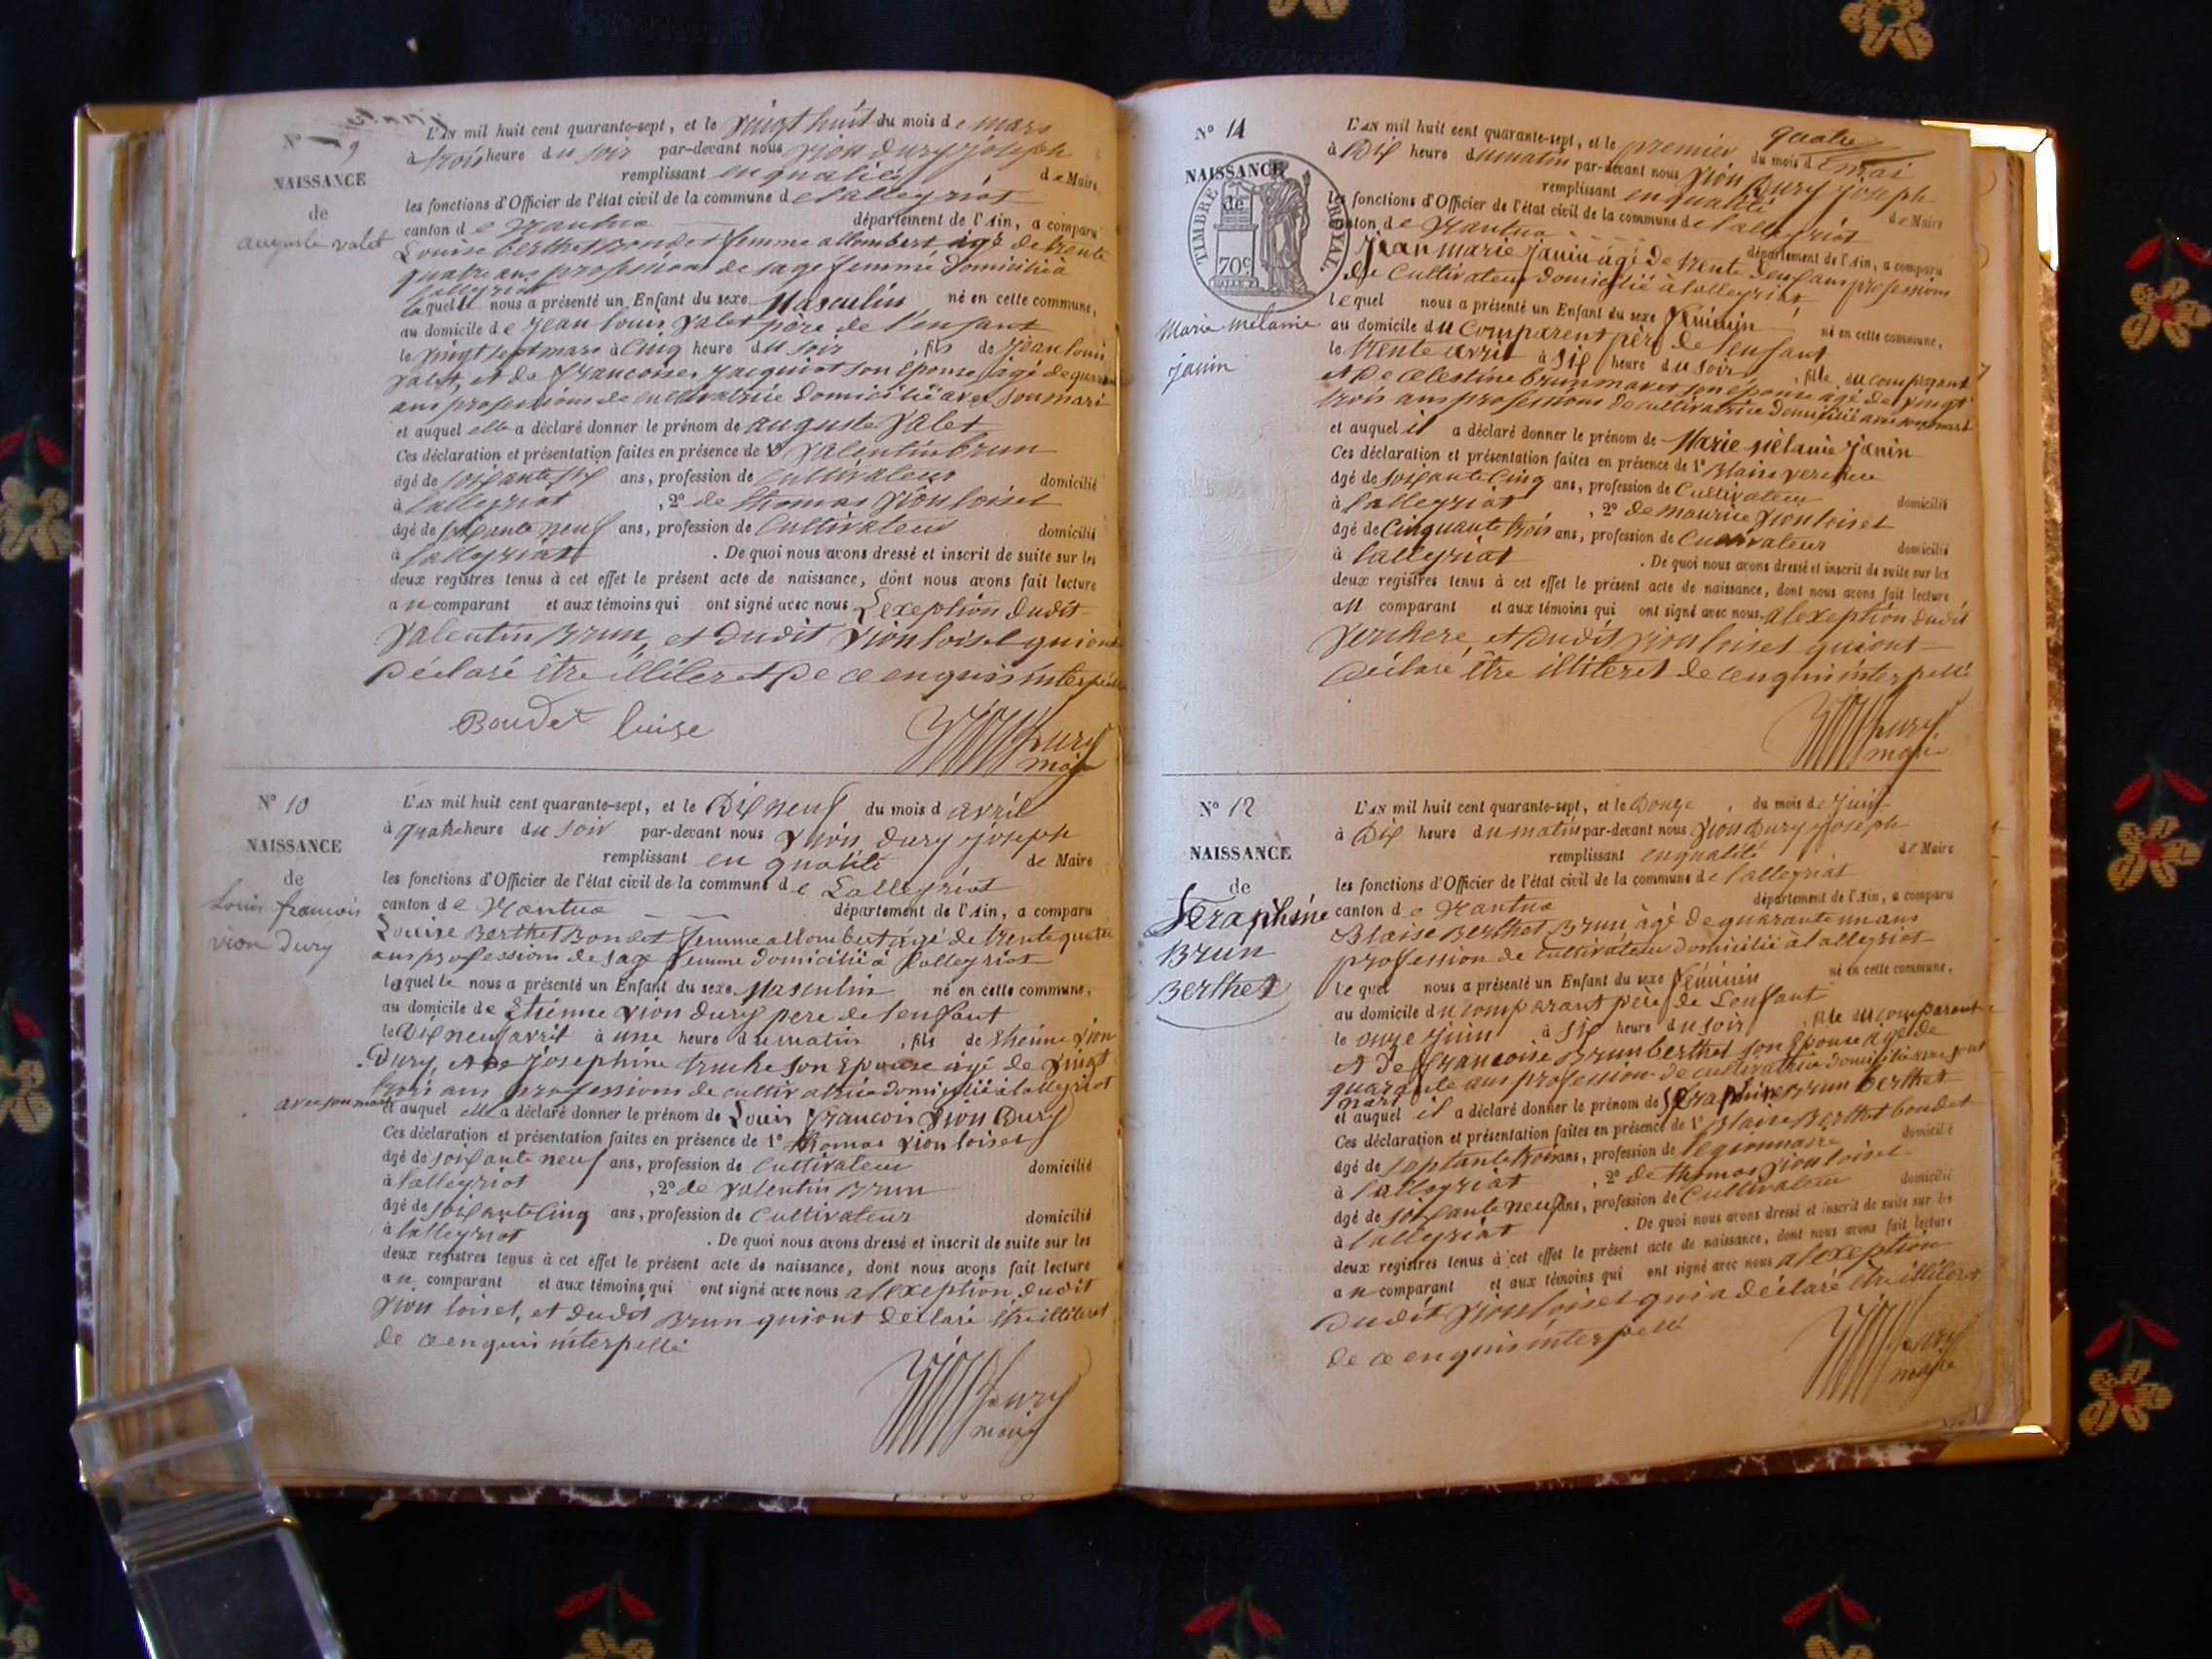 N° 9
NAISSANCE
de
auguste valet
L'AN mil huit cent quarante-sept, et le vingt huit du mois de mars
à trois heure du soir par-devant nous vion dury joseph
remplissant en qualité de Maire
les fonctions d'Officier de l'état civil de la commune de lalleyriat
canton de Nantua département de l'Ain, a comparu
Louise berthet bondet femme allombert agé de trente
quatre ans professions de sage femme domicilié à
lalleyriat
laquelle nous a présenté un Enfant du sexe Masculin né en cette commune,
au domicile de jean louis valet père de l'enfant
le vingt sept mars à cinq heure du soir, fils de jean louis
valet, et de francoise jacquiot son épouse agé de quarante
ans professions de cultivatrice domicilié avec son mari
et auquel elle a déclaré donner le prénom de auguste valet
Ces déclaration et présentation faites en présence de 1° valentin brun
âgé de soixante six ans, profession de cultivateur domicilié
à lalleyriat, 2° de thomas vion loiset
âgé de soixante neuf ans, profession de cultivateur domicilié
à lalleyriat. De quoi nous avons dressé et inscrit de suite sur les
deux registres tenus à cet effet le présent acte de naissance, dont nous avons fait lecture
au comparant et aux témoins qui ont signé avec nous L'exeption dudit
valentin Brun, et dudit vion loiset qui ont
déclaré être illiteret de ce enquis interpellé
Boudet luise
Dury
maire
N° 10
NAISSANCE
de
Louis francois
vion Dury
L'AN mil huit cent quarante-sept, et le Dix neuf du mois d avril
à quatre heure du soir par-devant nous vion dury joseph
remplissant en qualité de Maire
les fonctions d'Officier de l'état civil de la commune de Lalleyriat
canton de Nantua département de l'Ain, a comparu
Louise Berthet Bondet femme allombert agé de trente quatre
ans professions de sage femme domicilié à lalleyriat
laquelle nous a présenté un Enfant du sexe Masculin né en cette commune,
au domicile de Etienne vion dury pere de l'enfant
le Dix neuf avril à une heure du matin, fils de Etienne vion
Dury, et de josephine truche son Epouse agé de vingt
trois ans professions de cultivatrice domicilié à lalleyriat
avec son mari
et auquel elle a déclaré donner le prénom de Louis francois vion Dury
Ces déclaration et présentation faites en présence de 1° thomas vion loiset
âgé de soixante neuf ans, profession de cultivateur domicilié
à lalleyriat, 2° de valentin Brun
âgé de soixante cinq ans, profession de cultivateur domicilié
à lalleyriat. De quoi nous avons dressé et inscrit de suite sur les
deux registres tenus à cet effet le présent acte de naissance, dont nous avons fait lecture
au comparant et aux témoins qui ont signé avec nous a l'exeption dudit
vion loiset, et dudit Brun qui ont déclaré être illiteret
de ce enquis interpellé
Dury
maire
quatre
N° 11
NAISSANCE
de
TIMBRE ROYAL.
70c
Marie melanie
janin
L'AN mil huit cent quarante-sept, et le premier du mois d mai
à Dix heure du matin par-devant nous vion Dury joseph
remplissant en qualité de Maire
les fonctions d'Officier de l'état civil de la commune de lalleyriat
canton de Nantua département de l'Ain, a comparu
jean marie janin agé de trente deux ans professions
de Cultivateur domicilié à lalleyriat
lequel nous a présenté un Enfant du sexe féminin né en cette commune,
au domicile du comparent père de l'enfant
le trente avril à six heure du soir, fille du comparant
et de celestine brunmaret son épouse agé de vingt
trois ans professions de cultivatrice domicilié avec son mari
et auquel il a déclaré donner le prénom de Marie mélanie janin
Ces déclaration et présentation faites en présence de 1° Blaise verchere
âgé de soixante cinq ans, profession de Cultivateur domicilié
à lalleyriat, 2° de maurice vion loiset
âgé de Cinquante trois ans, profession de Cultivateur domicilié
à lalleyriat. De quoi nous avons dressé et inscrit de suite sur les
deux registres tenus à cet effet le présent acte de naissance, dont nous avons fait lecture
au comparant et aux témoins qui ont signé avec nous a l'exeption dudit
verchere, et dudit vion loiset qui ont
déclaré être illiteret de ce enquis interpellé
Dury
maire
N° 12
NAISSANCE
de
Seraphine
Brun
Berthet
L'AN mil huit cent quarante-sept, et le Douze, du mois de juin
à Dix heure du matin par-devant nous vion Dury joseph
remplissant en qualité de Maire
les fonctions d'Officier de l'état civil de la commune de lalleyriat
canton de Nantua département de l'Ain, a comparu
Blaise Berthet Brun agé de quarante un ans
profession de cultivateur domicilié à lalleyriat
lequel nous a présenté un Enfant du sexe féminin né en cette commune,
au domicile du comparant père de l'enfant
le onze juin à six heure du soir, fille du comparant
et de francoise Brun berthet son Epouse agé de
quarante ans profession de cultivatrice domicilié avec son
mari
et auquel il a déclaré donner le prénom de Seraphine Brun berthet
Ces déclaration et présentation faites en présence de 1° Blaise Berthet bondet
âgé de septante trois ans, profession de legionnaire domicilié
à lalleyriat, 2° de thomas vion loiset
âgé de soixante neuf ans, profession de Cultivateur domicilié
à lalleyriat. De quoi nous avons dressé et inscrit de suite sur les
deux registres tenus à cet effet le présent acte de naissance, dont nous avons fait lecture
au comparant et aux témoins qui ont signé avec nous a l'exeption
dudit vion loiset qui a déclaré être illiteret
de ce enquis interpellé
Dury
maire